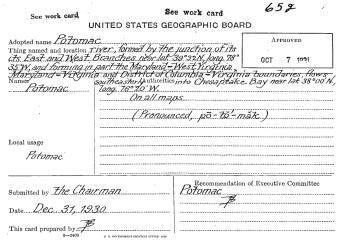 See work card
See work card
652
UNITED STATES GEOGRAPHIC BOARD
Adopted name Potomac
APPROVED
OCT 7 1931
Thing named and location river, formed by the junction of its
cts. East and West Branches near lat. 39°32'N, long. 78°
35'W, and forming in part the Maryland-West Virginia
Maryland-Virginia and District of Columbia-Virginia boundaries, flows
Names southeasterly Authorities into Chesapeake Bay near lat 38°00'N,
Potomac long. 76°20'W.
On all maps
(Pronounced, pō-tō'-măk)
Local usage
Potomac
Submitted by the Chairman
Date Dec. 31, 1930
This card prepared by
Recommendation of Executive Committee
Potomac
U. S. GOVERNMENT PRINTING OFFICE